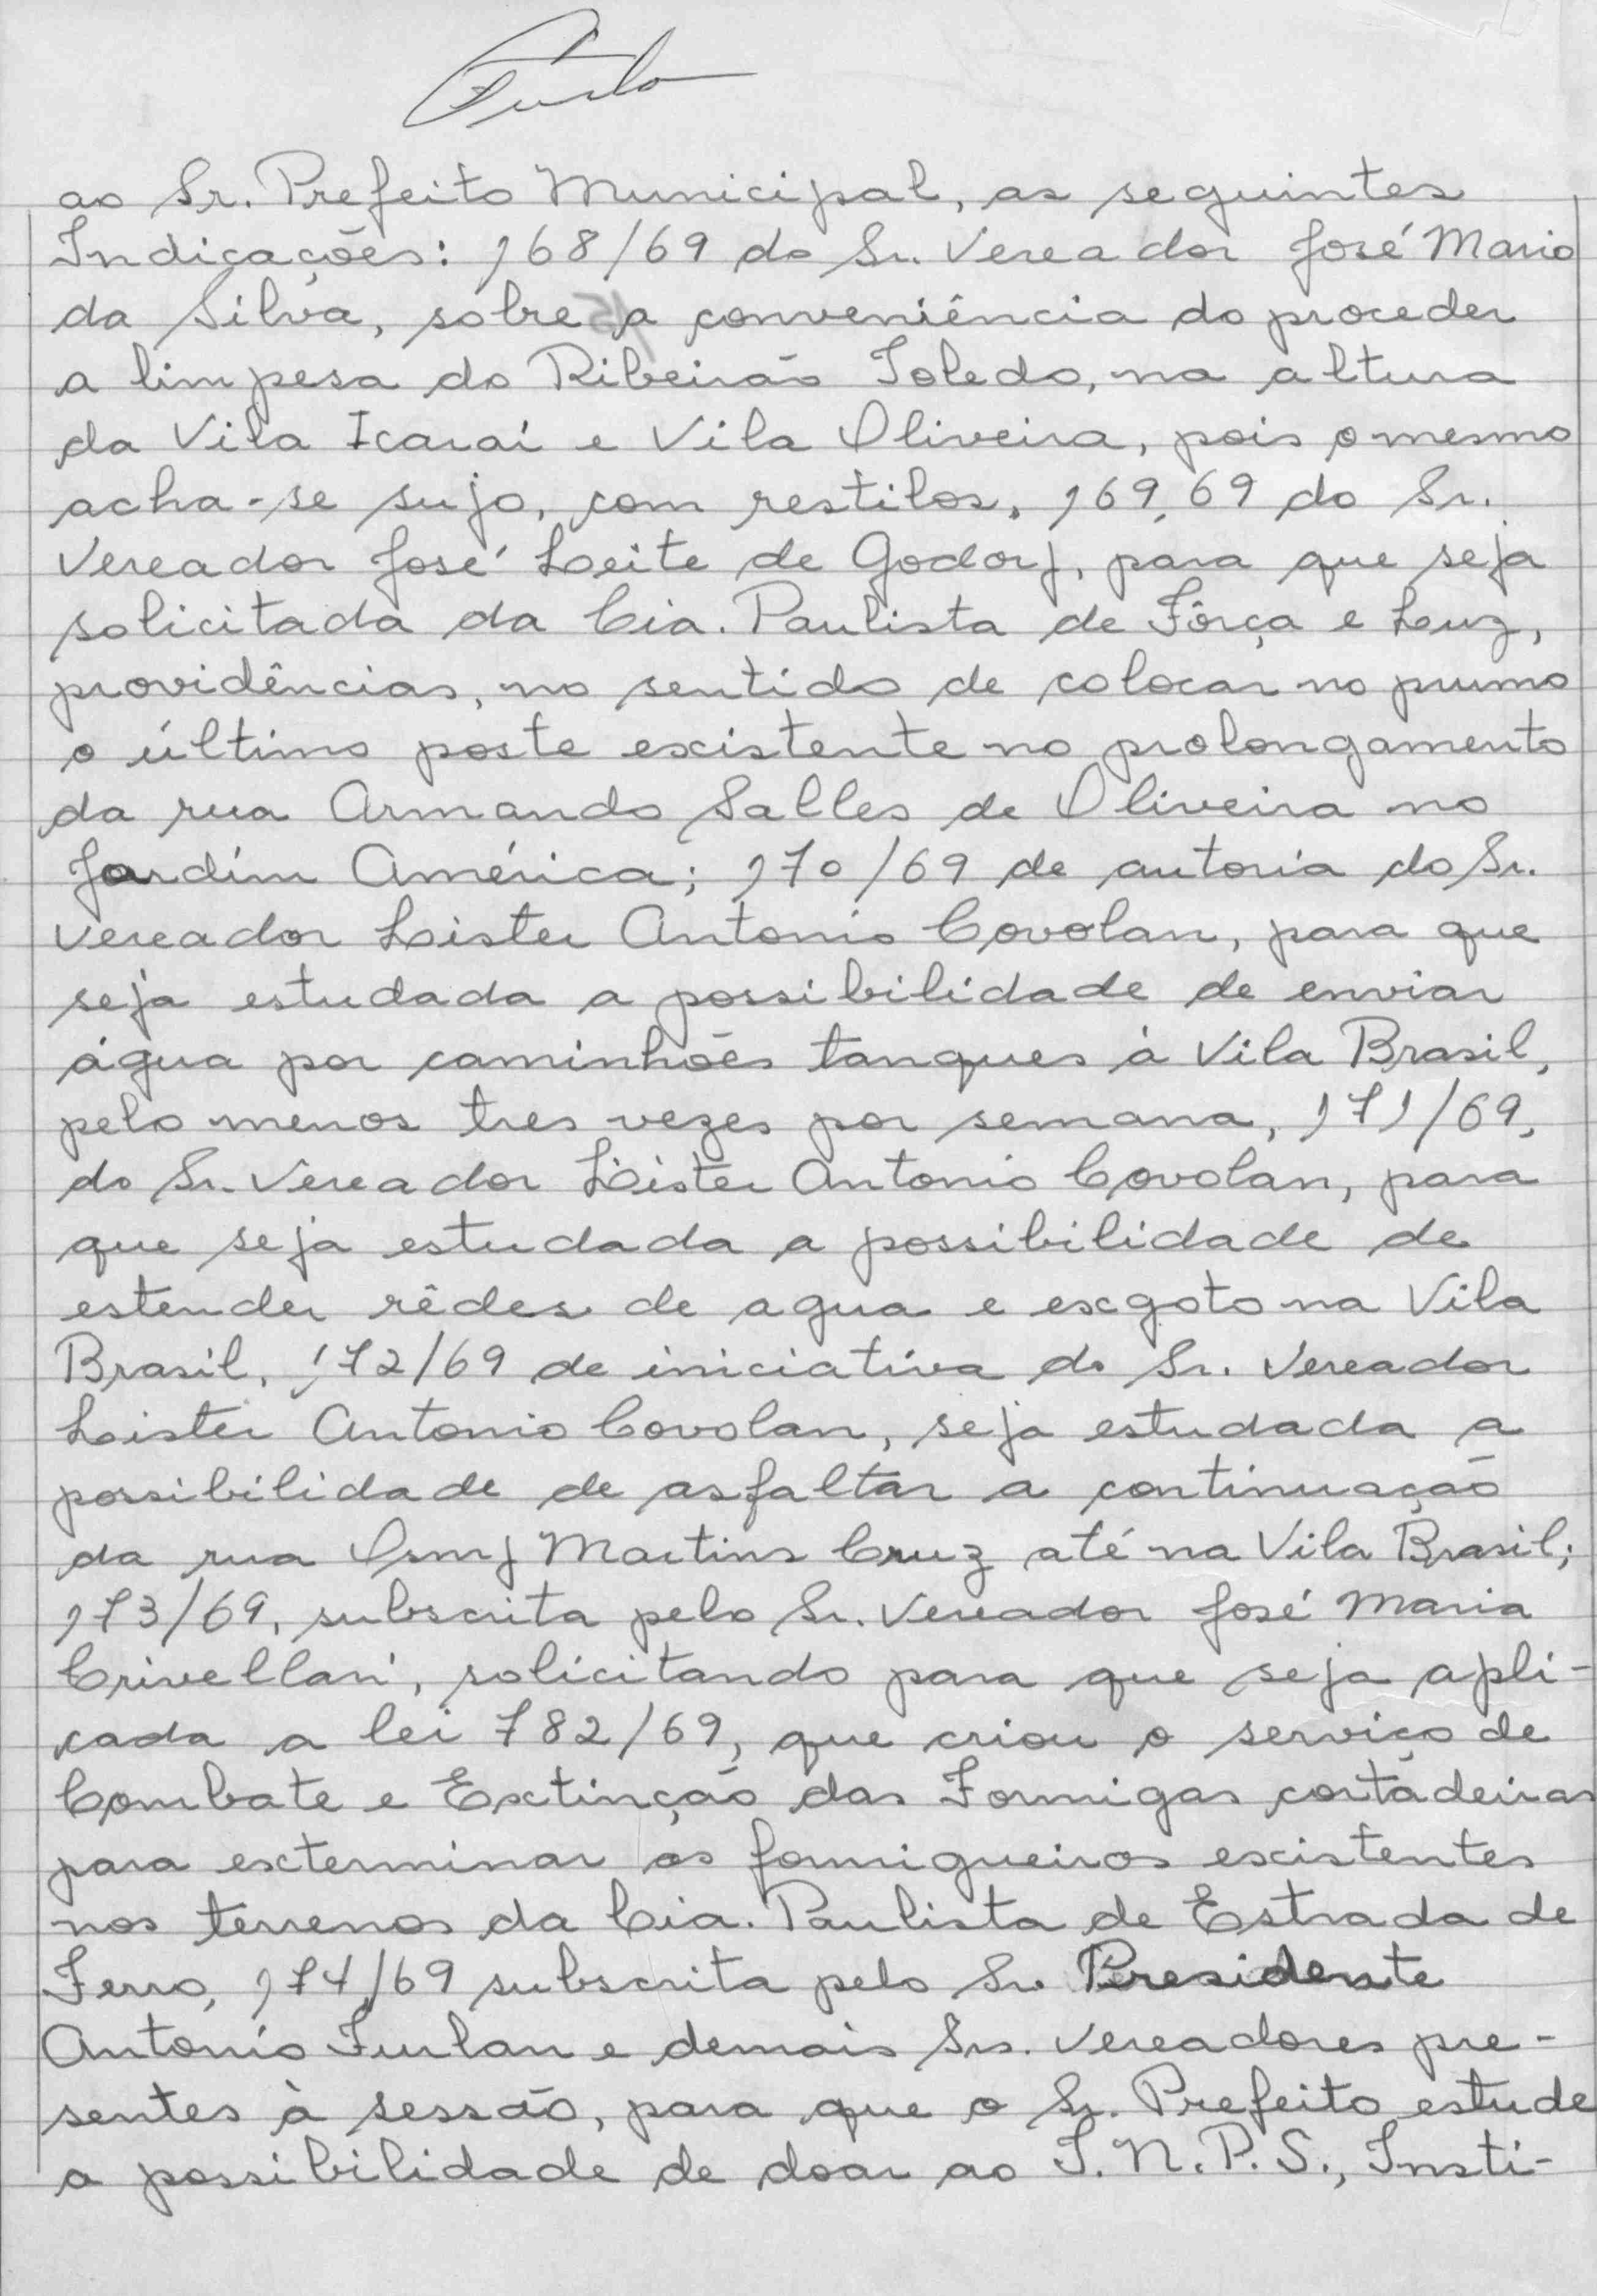 ao Sr. Prefeito Municipal, as seguintes
Indicações: 168/69 do Sr. Vereador José Mario
da Silva, sobre a conveniência do proceder
a limpesa do Ribeirão Toledo, na altura
da Vila Icaraí e Vila Oliveira, pois o mesmo
acha-se sujo, com restilos, 169,69 do Sr.
Vereador José Leite de Godoy, para que seja
solicitada da Cia. Paulista de Fôrça e Luz,
providências, no sentido de colocar no prumo
o último poste existente no prolongamento
da rua Armando Salles de Oliveira no
Jardim América; 170/69 de autoria do Sr.
Vereador Lister Antonio Covolan, para que
seja estudada a possibilidade de enviar
água por caminhões tanques à Vila Brasil,
pelo menos tres vezes por semana, 171/69,
do Sr. Vereador Lister Antonio Covolan, para
que seja estudada a possibilidade de
estender rêdes de agua e exgoto na Vila
Brasil, 172/69 de iniciativa do Sr. Vereador
Lister Antonio Covolan, seja estudada a
possibilidade de asfaltar a continuação
da rua Osmy Martins Cruz até na Vila Brasil;
173/69, subscrita pelo Sr. Vereador José Maria
Crivellari, solicitando para que seja apli-
cada a lei 782/69, que criou o serviço de
Combate e Extinção das Formigas cortadeiras
para exterminar os formigueiros existentes
nos terrenos da Cia. Paulista de Estrada de
Ferro, 174/69 subscrita pelo Sr. Presidente
Antonio Furlan e demais Srs. Vereadores pre-
sentes à sessão, para que o Sr. Prefeito estude
a possibilidade de doar ao I.N.P.S., Insti-